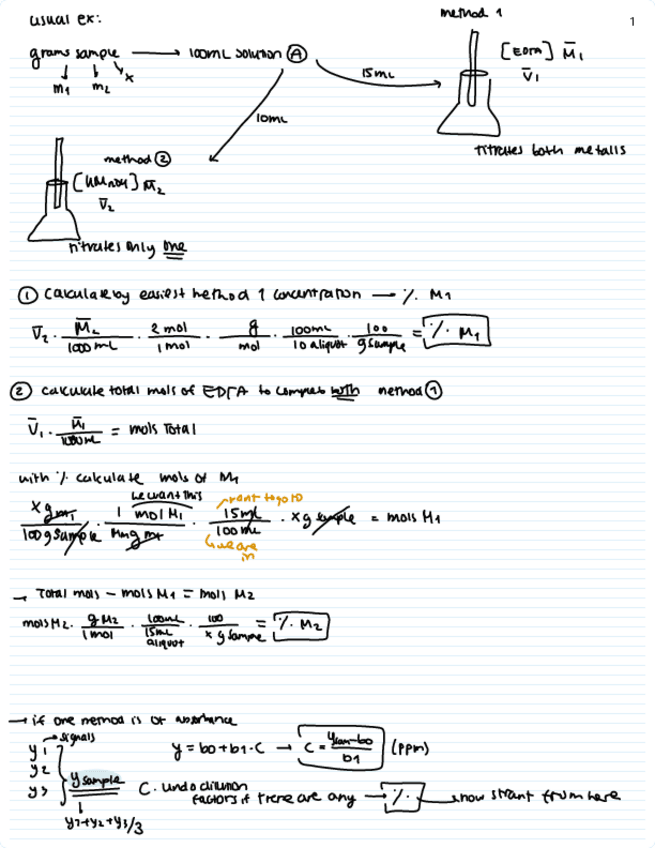 usual ex:
method 1
1
grams sample → 100mL solution Ⓐ
m1 m2 x
15mL
[EDTA] M̄1
V̄1
titrates both metalls
10mL
method ②
[KMnO4] M̄2
V̄2
titrates only one
① Calculate by easiest method 1 concentration — % M1
V̄2 · M̄2/1000mL · 2 mol/1 mol · g/mol · 100mL/10 aliquot · 100/g sample = % M1
② calculate total mols of EDTA to complex with method ①
V̄1 · M̄1/1000mL = mols Total
with % calculate mols of M1
we want this
want to go to
x g m1/100 g sample · 1 mol M1/Mm g m1 · 15mL/100mL · x g sample = mols M1
we are in
→ Total mols – mols M1 = mols M2
mols M2 · g M2/1 mol · 100mL/15mL aliquot · 100/x g sample = % M2
→ if one method is of absorbance
→ signals
y1
y2
y3
y sample
y1+y2+y3/3
y = b0 + b1 · C → C = ysam-b0/b1 (ppm)
C. undo dilution factors if there are any → % → now start from here